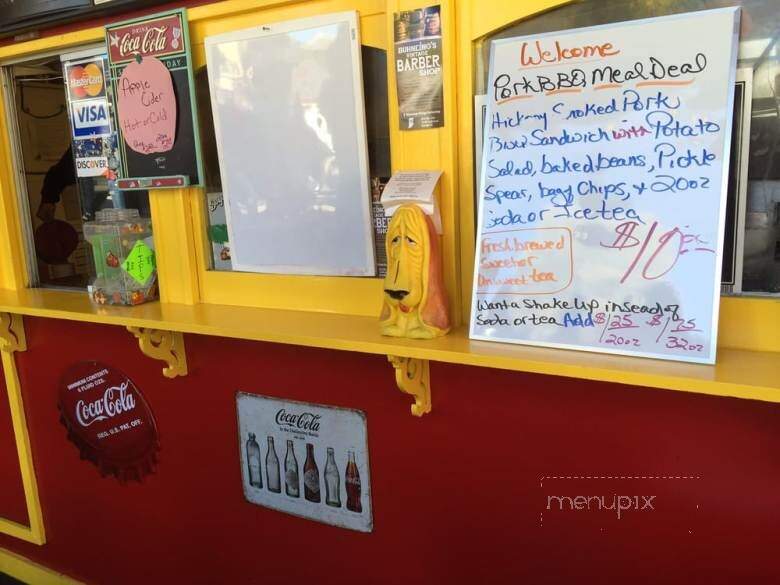 MasterCard
VISA
DISCOVER
DRINK
Coca-Cola
DAY
Apple
Cider
Hot or Cold
BARBER
SHOP
Welcome
Pork BBQ Meal Deal
Hickory Smoked Pork
BBQ Sandwich with Potato
Salad, baked beans, Pickle
Spear, bag Chips, & 20oz
Soda or Ice tea
$10
Fresh brewed
Sweet or
Unsweet tea
Want a Shake Up in sead of
Soda or tea Add $1.25 $1.75
20oz 32oz
TIPS
MINIMUM CONTENTS
6 FLUID OZS.
Coca-Cola
REG. U.S. PAT. OFF.
Coca-Cola
menupix